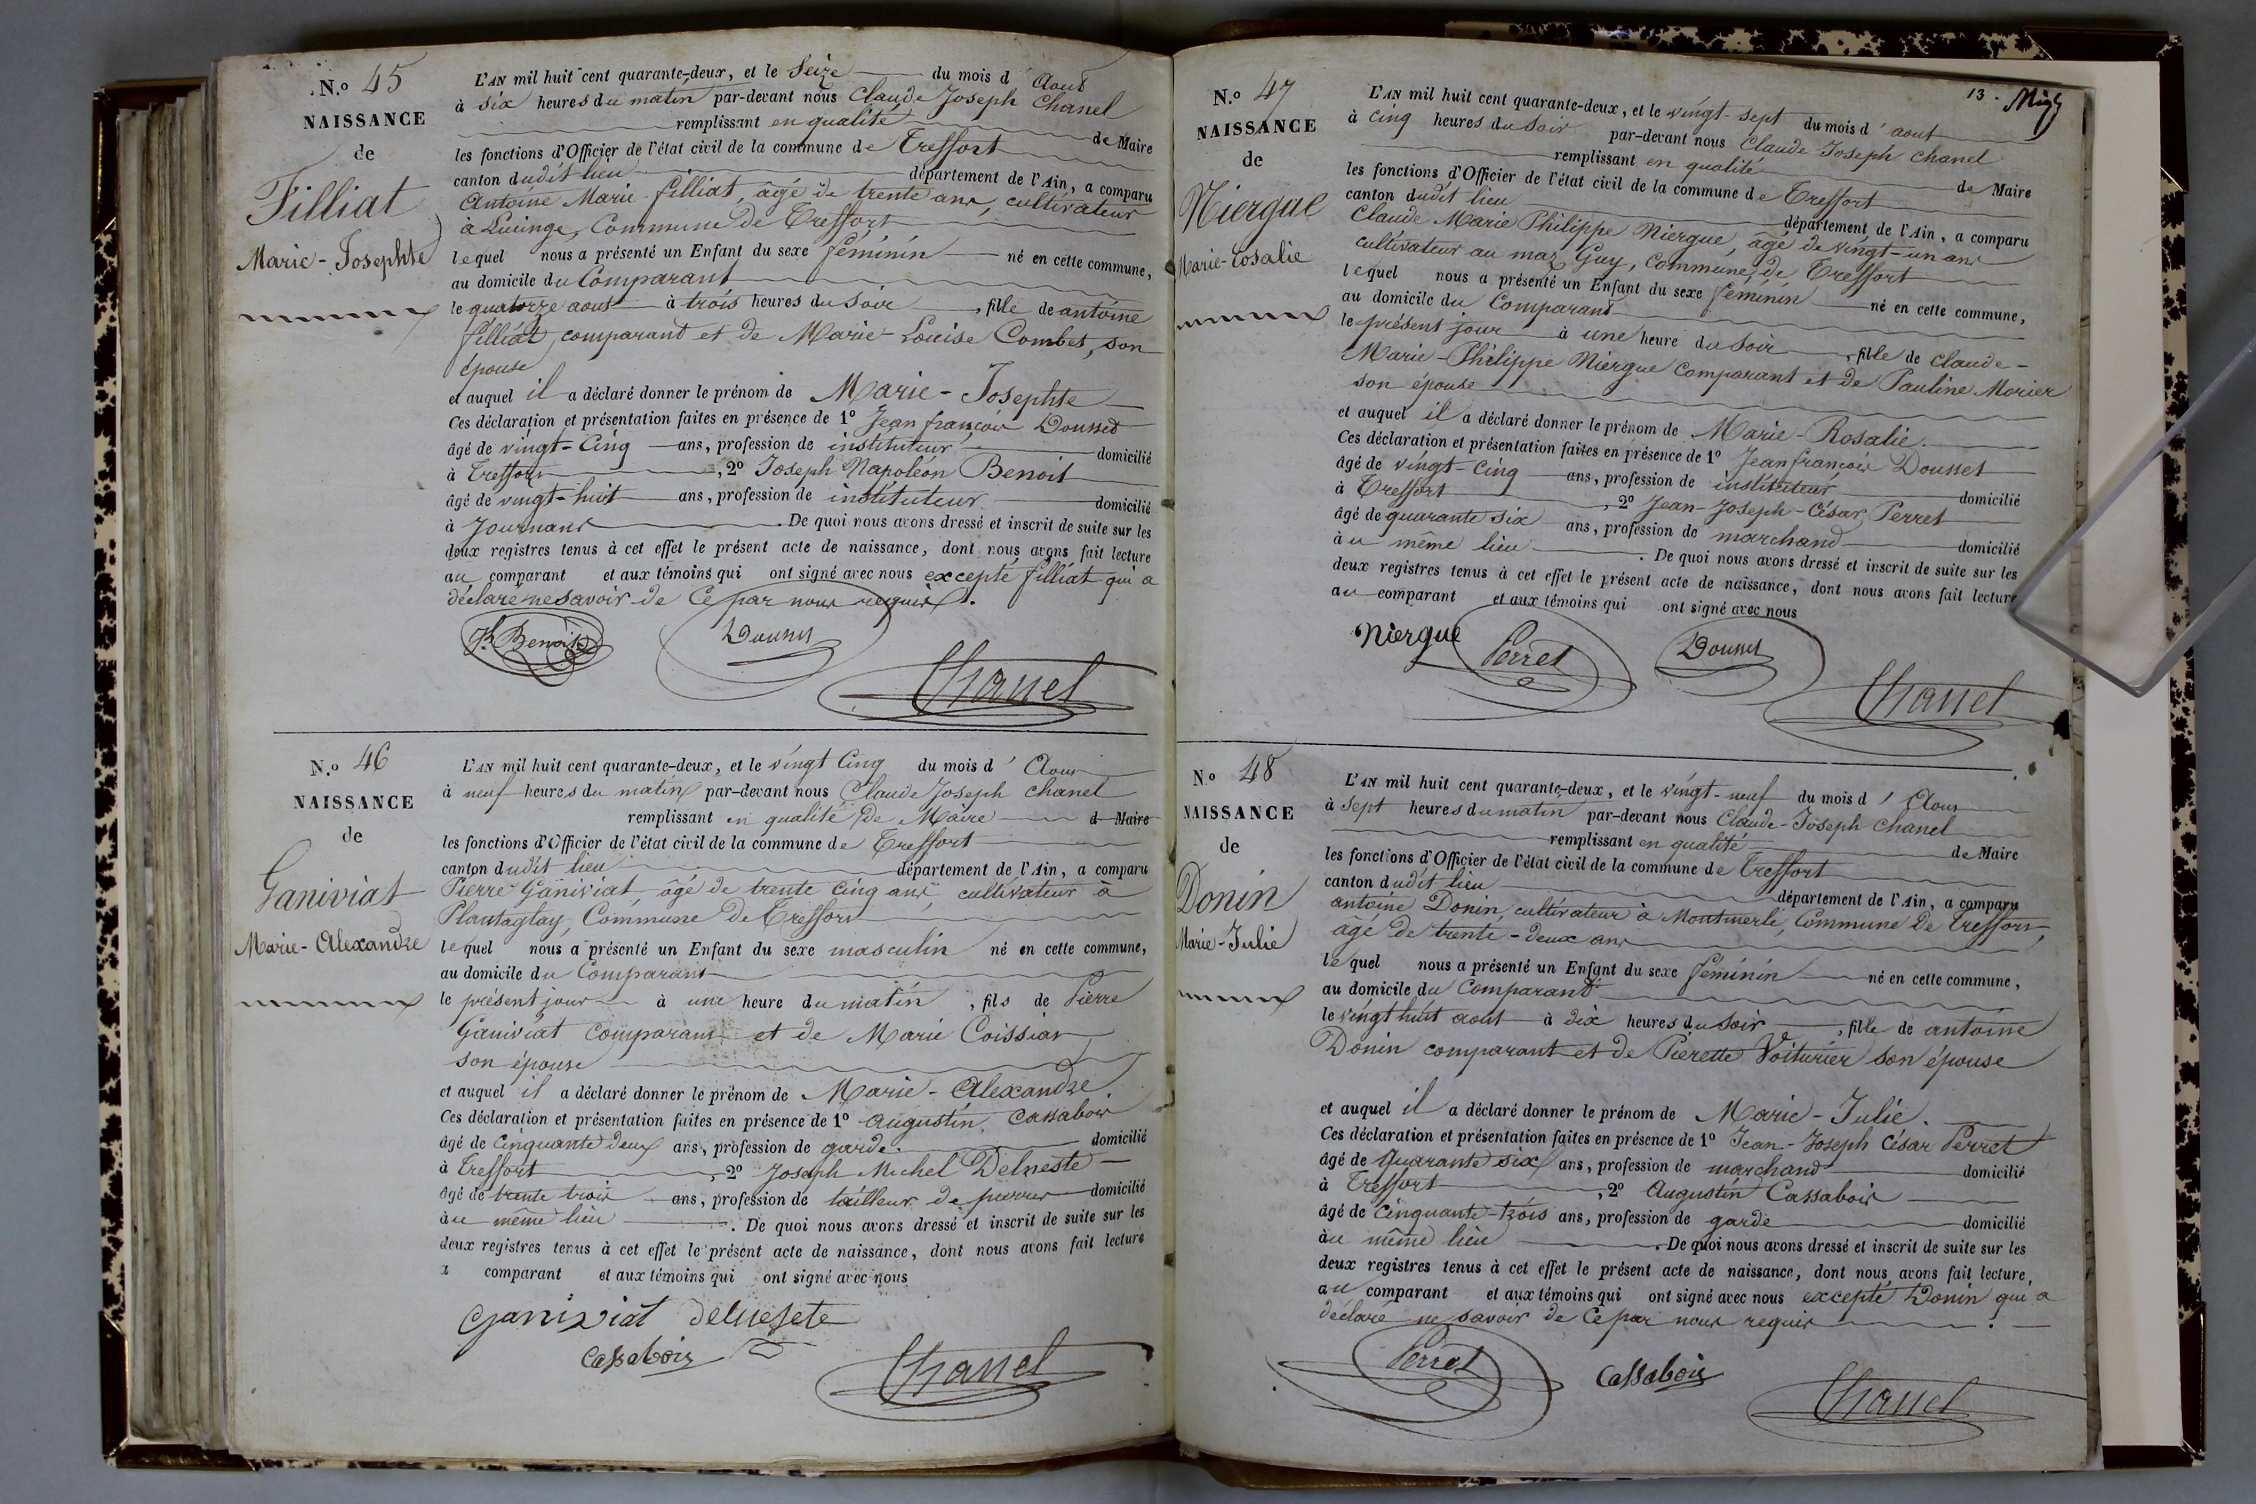 N.º 45
NAISSANCE
de
Filliat
Marie-Josephte
L'AN mil huit cent quarante-deux, et le Seize du mois d'Aout
à six heures du matin par-devant nous Claude Joseph Chanel
remplissant en qualité de Maire
les fonctions d'Officier de l'état civil de la commune de Treffort
canton dudit lieu département de l'Ain, a comparu
Antoine Marie filliat, âgé de trente ans, cultivateur
à Lucinge, Commune de Treffort
lequel nous a présenté un Enfant du sexe féminin né en cette commune,
au domicile du Comparant
le quatorze aout à trois heures du Soir, fille de antoine
filliat, comparant et de Marie-Louise Combet, son
épouse
et auquel il a déclaré donner le prénom de Marie-Josephte
Ces déclaration et présentation faites en présence de 1º Jean françois Dousset
âgé de vingt-Cinq ans, profession de instituteur domicilié
à Treffort, 2º Joseph Napoléon Benoit
âgé de vingt-huit ans, profession de instituteur domicilié
à Journans. De quoi nous avons dressé et inscrit de suite sur les
deux registres tenus à cet effet le présent acte de naissance, dont nous avons fait lecture
au comparant et aux témoins qui ont signé avec nous excepté filliat qui a
déclaré ne savoir de Ce par nous requis.
Jh Benoit Dousset
Chanel
N.º 46
NAISSANCE
de
Ganiviat
Marie-Alexandre
L'AN mil huit cent quarante-deux, et le vingt Cinq du mois d'Aout
à neuf heures du matin par-devant nous Claude Joseph Chanel
remplissant en qualité de Maire d Maire
les fonctions d'Officier de l'état civil de la commune de Treffort
canton dudit lieu département de l'Ain, a comparu
Pierre Ganiviat, âgé de trente Cinq ans, cultivateur à
Plantaglay, Commune de Treffort
lequel nous a présenté un Enfant du sexe masculin né en cette commune,
au domicile du Comparant
le présent jour à une heure du matin, fils de Pierre
Ganiviat Comparant et de Marie Coissiat
son épouse
et auquel il a déclaré donner le prénom de Marie-Alexandre
Ces déclaration et présentation faites en présence de 1º Augustin Cassabois
âgé de Cinquante deux ans, profession de garde domicilié
à Treffort, 2º Joseph Michel Delneste
âgé de trente trois ans, profession de tailleur de pierres domicilié
au même lieu. De quoi nous avons dressé et inscrit de suite sur les
deux registres tenus à cet effet le présent acte de naissance, dont nous avons fait lecture
a comparant et aux témoins qui ont signé avec nous
ganiviat
Cassabois Chanel
13.
N.º 47
NAISSANCE
de
Niergue
Marie-Rosalie
L'AN mil huit cent quarante-deux, et le vingt-sept du mois d'aout
à Cinq heures du Soir par-devant nous Claude Joseph Chanel
remplissant en qualité de Maire
les fonctions d'Officier de l'état civil de la commune de Treffort
canton dudit lieu département de l'Ain, a comparu
Claude Marie Philippe Niergue, âgé de vingt-un ans
cultivateur au maz Guy, Commune de Treffort
lequel nous a présenté un Enfant du sexe féminin né en cette commune,
au domicile du Comparant
le présent jour à une heure du Soir, fille de Claude-
Marie-Philippe Niergue Comparant et de Pauline Morier
son épouse
et auquel il a déclaré donner le prénom de Marie-Rosalie.
Ces déclaration et présentation faites en présence de 1º Jean françois Dousset
âgé de vingt-Cinq ans, profession de instituteur domicilié
à Treffort, 2º Jean-Joseph-César Perret
âgé de quarante six ans, profession de marchand domicilié
au même lieu. De quoi nous avons dressé et inscrit de suite sur les
deux registres tenus à cet effet le présent acte de naissance, dont nous avons fait lecture
au comparant et aux témoins qui ont signé avec nous
Niergue Perret Dousset
Chanel
N.º 48
NAISSANCE
de
Donin
Marie-Julie
L'AN mil huit cent quarante-deux, et le vingt-neuf du mois d'Aout
à sept heures du matin par-devant nous Claude-Joseph Chanel
remplissant en qualité de Maire
les fonctions d'Officier de l'état civil de la commune de Treffort
canton dudit lieu département de l'Ain, a comparu
antoine Donin, cultivateur à Montmerle, Commune de Treffort,
âgé de trente-deux ans
lequel nous a présenté un Enfant du sexe féminin né en cette commune,
au domicile du Comparant
le vingt huit aout à dix heures du Soir, fille de antoine
Donin comparant et de Pierette Voiturier son épouse
et auquel il a déclaré donner le prénom de Marie-Julie.
Ces déclaration et présentation faites en présence de 1º Jean-Joseph César Perret
âgé de Quarante six ans, profession de marchand domicilié
à Treffort, 2º Augustin Cassabois
âgé de Cinquante-trois ans, profession de garde domicilié
au même lieu. De quoi nous avons dressé et inscrit de suite sur les
deux registres tenus à cet effet le présent acte de naissance, dont nous avons fait lecture,
au comparant et aux témoins qui ont signé avec nous excepté Donin qui a
déclaré ne savoir de Ce par nous requis.
Perret Cassabois Chanel